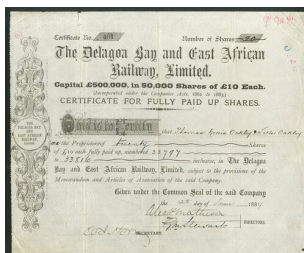 Certificate No. 401
Number of Shares 20
The Delagoa Bay and East African
Railway, Limited.
Capital £500,000, in 50,000 Shares of £10 Each.
Incorporated under the Companies Acts, 1862 to 1883
CERTIFICATE FOR FULLY PAID UP SHARES.
THE DELAGOA BAY
AND
EAST AFRICAN
RAILWAY
LIMITED
This is to Certify that Thomas Oakley
the Proprietor of Twenty Shares
of £10 each fully paid up, numbered 23797
to 23816 inclusive, in The Delagoa
Bay and East African Railway, Limited, subject to the provisions of the
Memorandum and Articles of Association of the said Company.
Given under the Common Seal of the said Company
the day of June 1887
DIRECTORS.
SECRETARY.